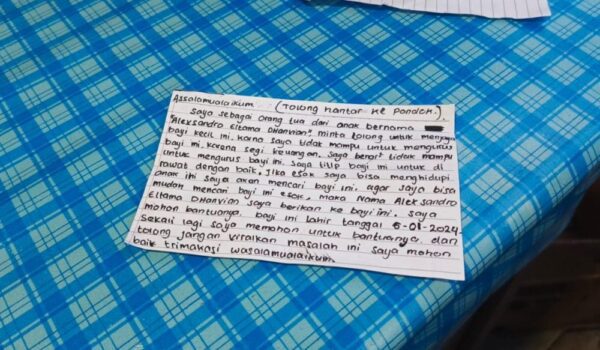 Assalamualaikum (Tolong hantar ke pondok.),
Saya sebagai orang tua dari anak bernama
"Aleksandro Eltama DHanvian" minta tolong untuk menjaga
bayi kecil ini. karna saya tidak mampu untuk mengurus
bayi ini. karena segi keuangan. saya benar² tidak mampu
untuk mengurus bayi ini. saya titip bayi ini untuk di
rawat dengan baik. Jika esok saya bisa menghidupi
anak ini saya akan mencari bayi ini. agar saya bisa
mudah mencari bayi ini esok, maka Nama Aleksandro
Eltama DHanvian saya berikan ke bayi ini. saya
mohon bantuanya. bayi ini lahir tanggal 5-01-2024.
sekali lagi saya memohon untuk bantuanya, dan
tolong jangan viralkan masalah ini saya mohon
baik trimakasi wasalamualaikum.